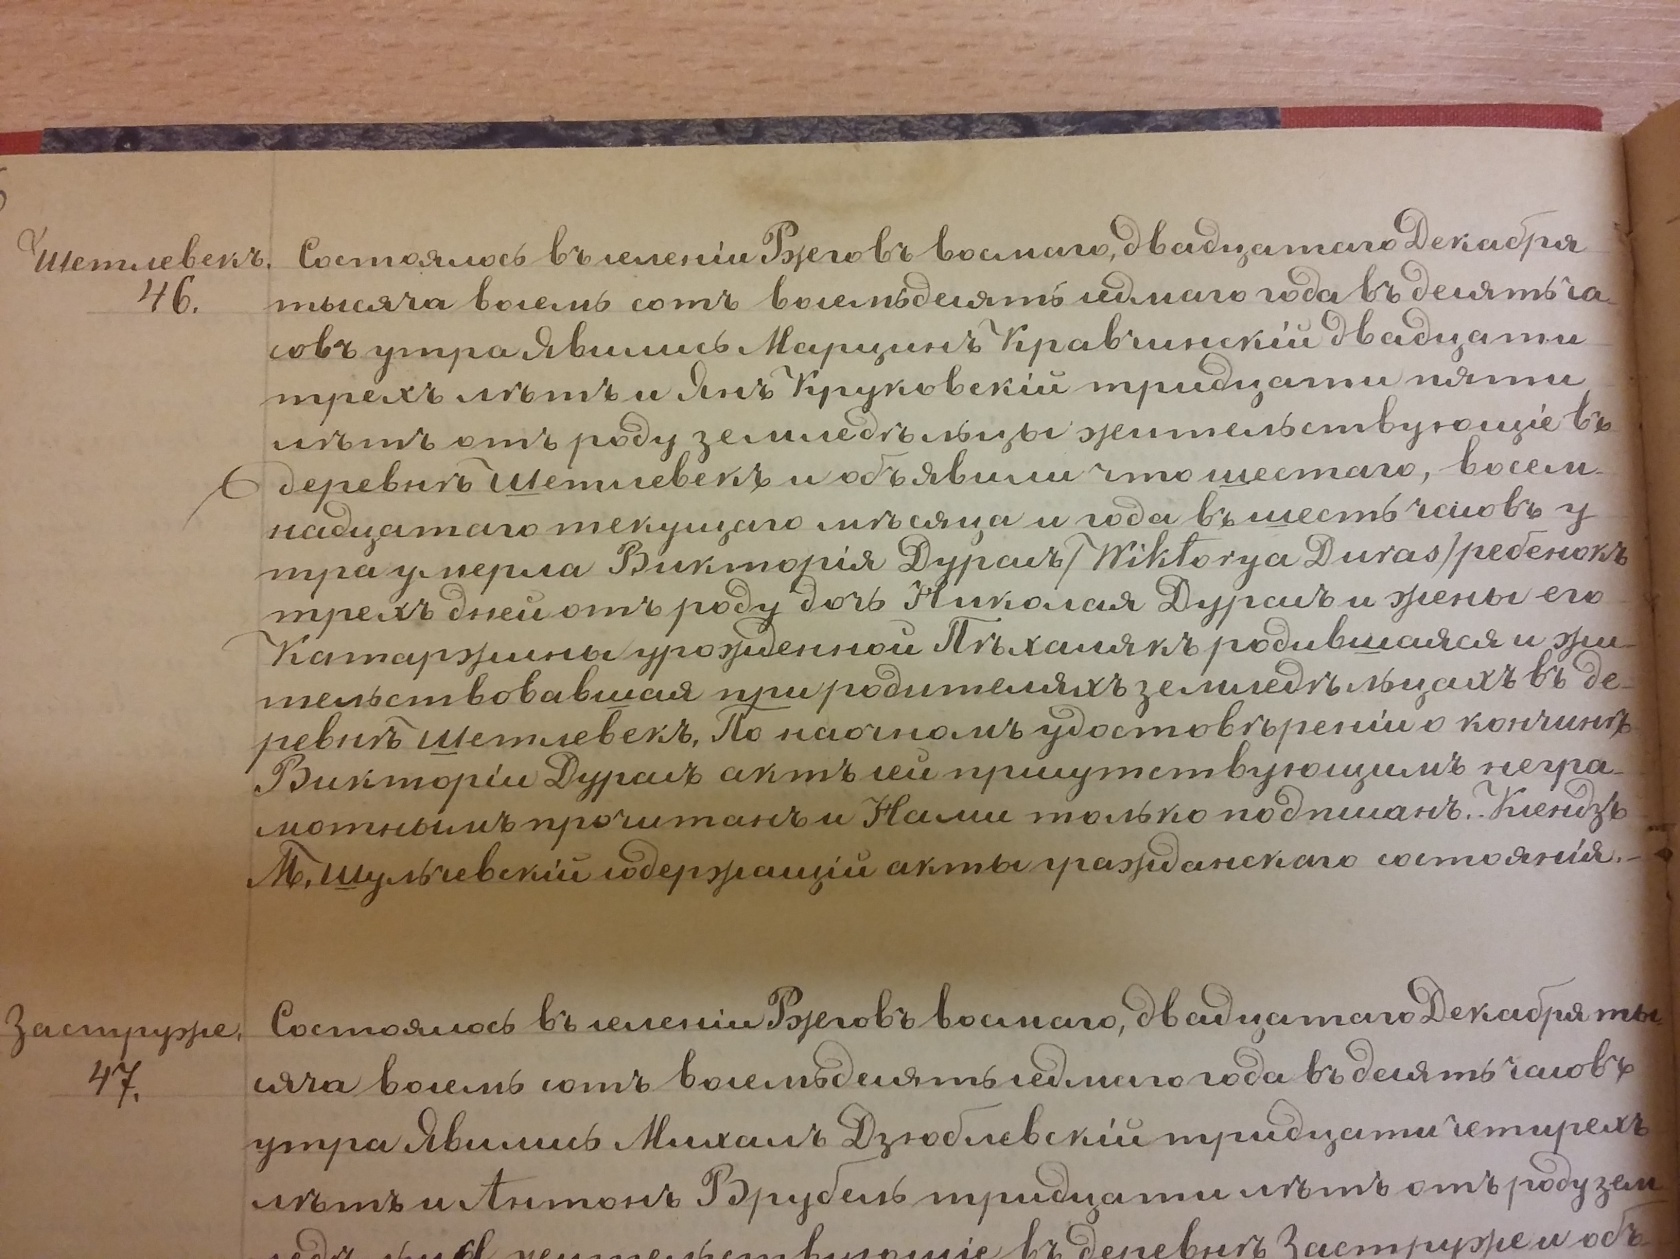 Шетлевекъ.
46.
Состоялось въ селеніи Ржеговъ восмаго, двадцатаго Декабря
тысяча восемь сотъ восемьдесятъ седмаго года въ десять ча-
совъ утра Явились Марцинъ Кравчинскій двадцати
трехъ лѣтъ и Янъ Круковскій тридцати пяти
лѣтъ отъ роду земледѣльцы жительствующіе въ
деревнѣ Шетлевекъ и объявили что шестаго, восем-
надцатаго текущаго мѣсяца и года въ шесть часовъ у
тра умерла Викторія Дурасъ /Wiktorya Duras/ ребенокъ
трехъ дней отъ роду дочь Николая Дурасъ и жены его
Катаржины урожденной Пѣхалякъ родившаяся и жи-
тельствовавшая при родителяхъ земледѣльцахъ въ де-
ревнѣ Шетлевекъ. По наочномъ удостовѣреніи о кончинѣ
Викторіи Дурасъ актъ сей присутствующимъ негра-
мотнымъ прочитанъ и Нами только подписанъ. Ксендзъ
М. Шульчевскій содержащій акты гражданскаго состоянія.
Заструже.
47.
Состоялось въ селеніи Ржеговъ восмаго, двадцатаго Декабря ты-
сяча восемь сотъ восемьдесятъ седмаго года въ десять часовъ
утра Явились Михалъ Дзюблевскій тридцати четирехъ
лѣтъ и Антонъ Врубель тридцати лѣтъ отъ роду зем
ледѣльцы жительствующіе въ деревнѣ Заструже и объ